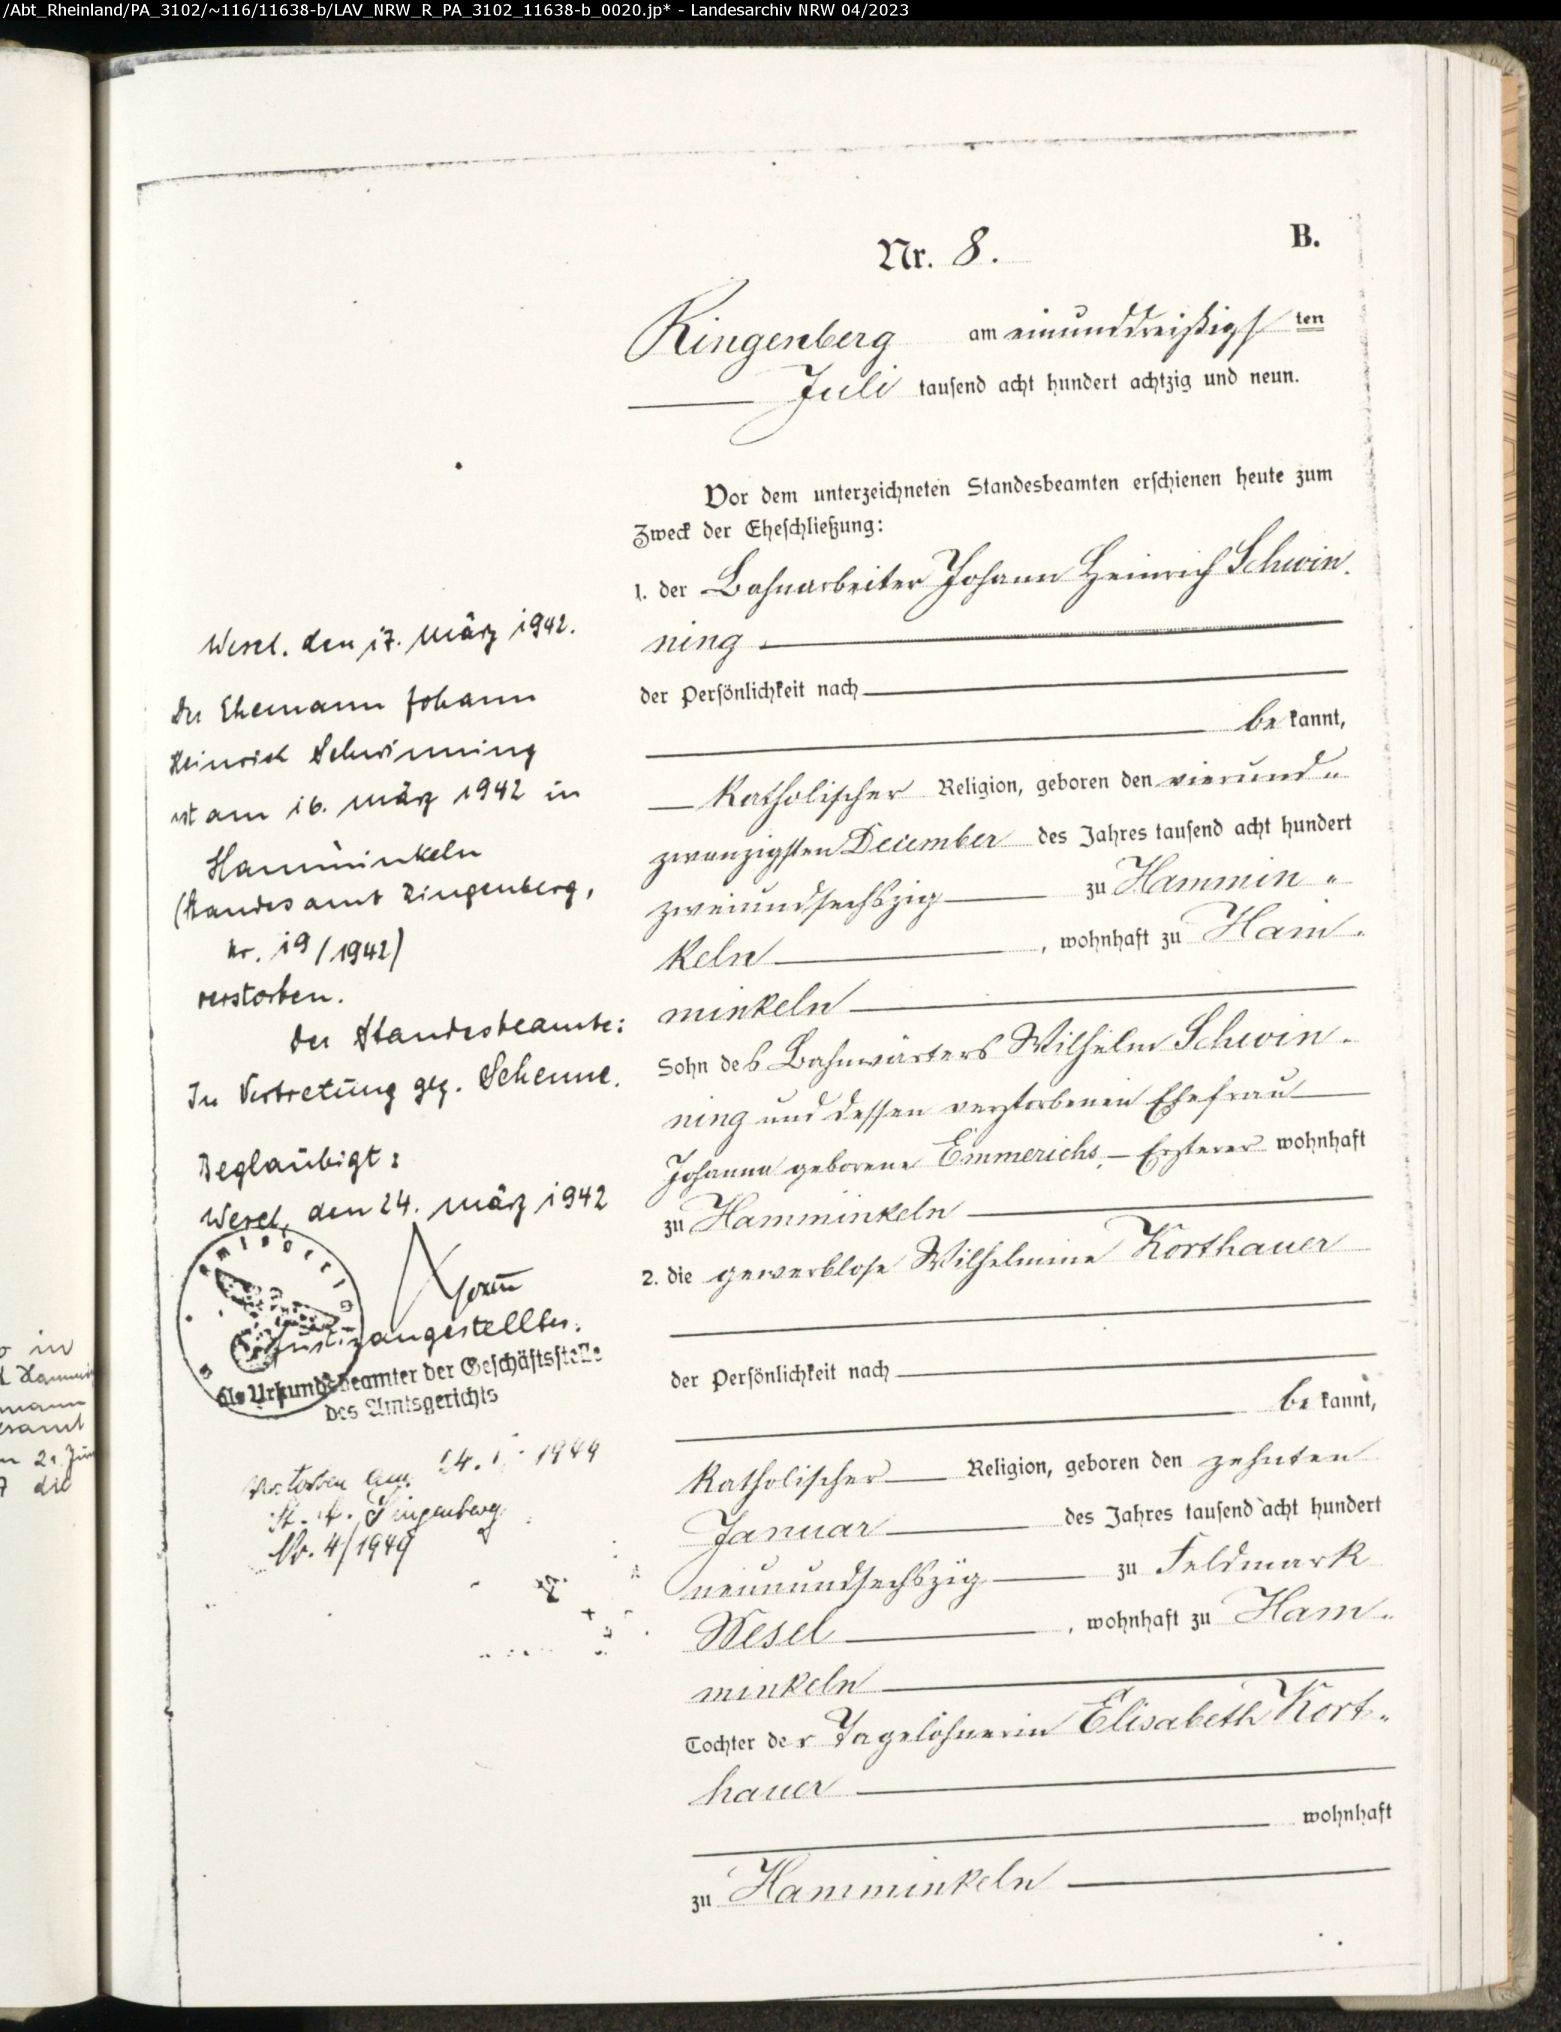 /Abt_Rheinland/PA_3102/~116/11638-b/LAV_NRW_R_PA_3102_11638-b_0020.jp* - Landesarchiv NRW 04/2023
B.
Nr. 8.
Ringenberg am einunddreißigsten
Juli tausend acht hundert achtzig und neun.
Vor dem unterzeichneten Standesbeamten erschienen heute zum
Zweck der Eheschließung:
1. der Bahnarbeiter Johann Heinrich Schwin-
ning
der Persönlichkeit nach
be kannt,
katholischer Religion, geboren den vierund-
zwanzigsten December des Jahres tausend acht hundert
zweiundsechszig zu Hammin-
keln, wohnhaft zu Ham-
minkeln
Sohn des Bahnwärters Wilhelm Schwin-
ning und dessen verstorbenen Ehefrau
Johanna geborene Emmerichs, – Ersterer wohnhaft
zu Hamminkeln
2. die gewerblose Wilhelmine Korthauer
der Persönlichkeit nach
be kannt,
katholischer Religion, geboren den zehnten
Januar des Jahres tausend acht hundert
neunundsechszig zu Feldmark
Wesel, wohnhaft zu Ham-
minkeln
Tochter der Tagelöhnerin Elisabeth Kort-
hauer
wohnhaft
zu Hamminkeln
Wesel, den 17. März 1942.
Der Ehemann Johann
Heinrich Schwinning
ist am 16. März 1942 in
Hamminkeln
(Standesamt Ringenberg,
Nr. 19/1942)
verstorben.
Der Standesbeamte:
In Vertretung gez. Schenne.
Beglaubigt:
Wesel, den 24. März 1942
Justizangestellter.
als Urkundsbeamter der Geschäftsstelle
des Amtsgerichts
Verstorben am 24. 1949
St. A. Ringenberg
Nr. 4/1949